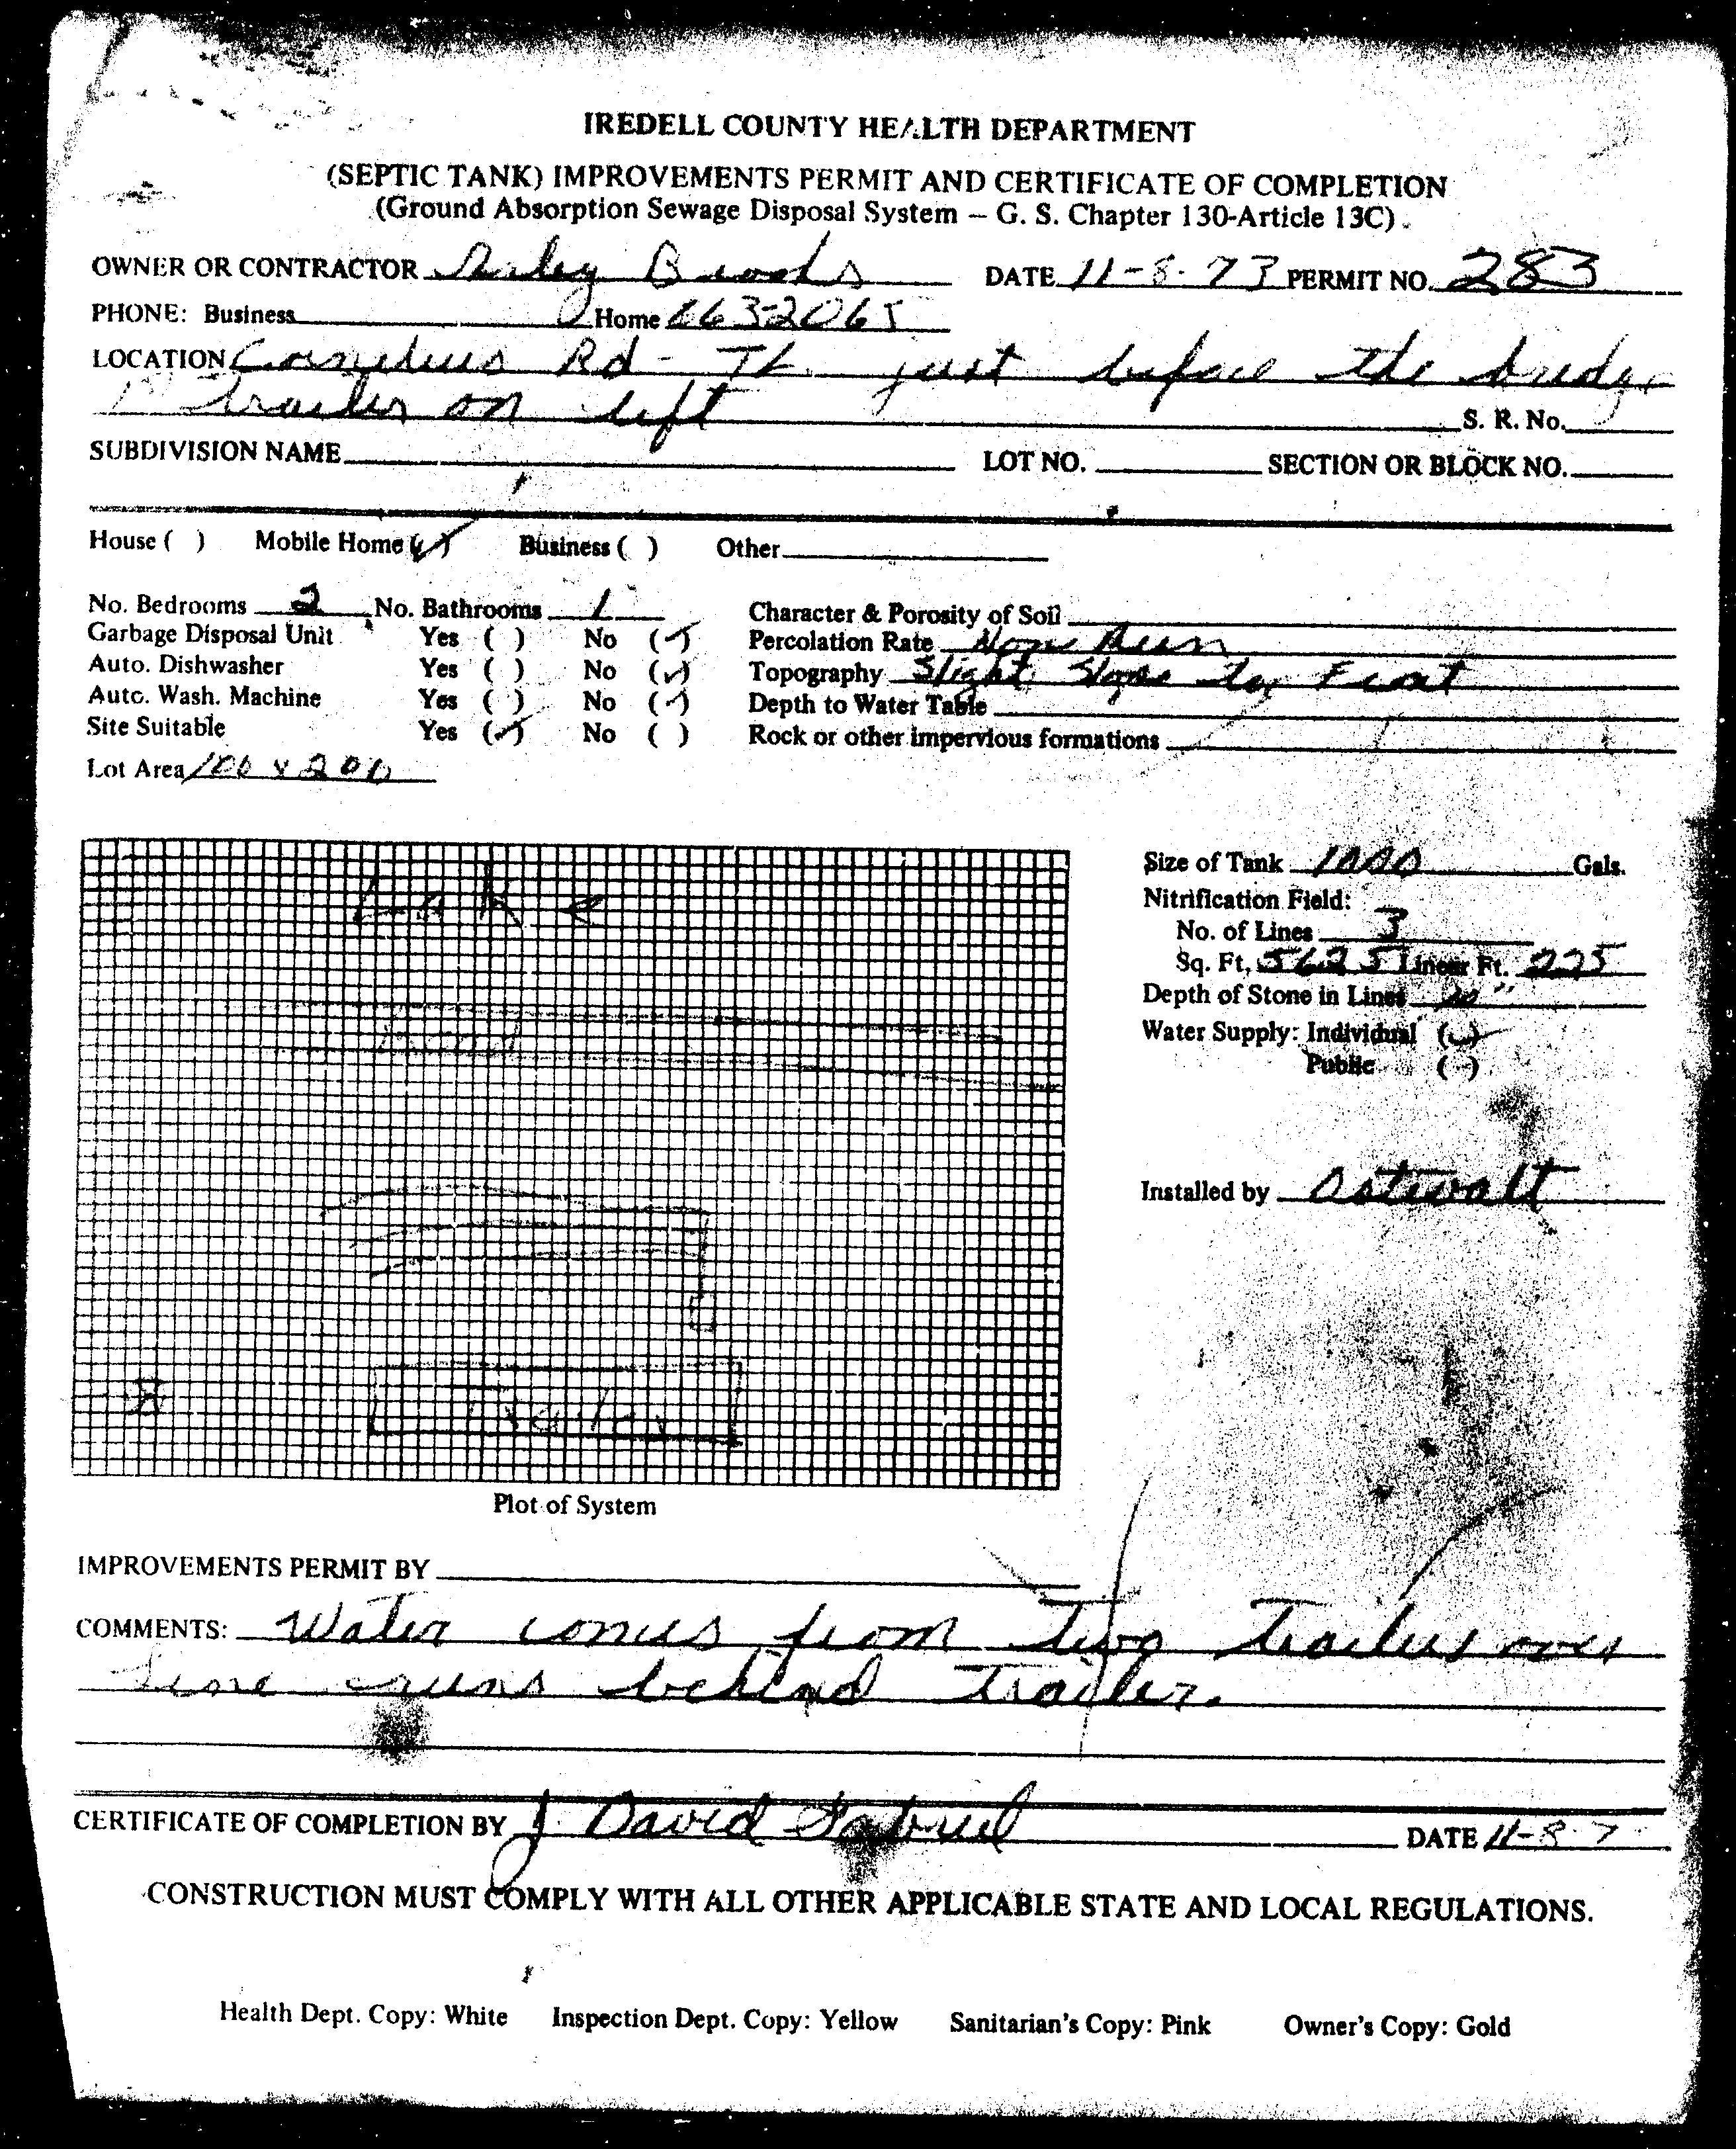 IREDELL COUNTY HEALTH DEPARTMENT
(SEPTIC TANK) IMPROVEMENTS PERMIT AND CERTIFICATE OF COMPLETION
(Ground Absorption Sewage Disposal System – G. S. Chapter 130-Article 13C)
OWNER OR CONTRACTOR Brooks DATE 11-8-73 PERMIT NO. 283
PHONE: Business Home 663-2065
LOCATION Cornelius Rd - TL just before the bridge
trailer on left S. R. No.
SUBDIVISION NAME LOT NO. SECTION OR BLOCK NO.
House ( ) Mobile Home (✓) Business ( ) Other
No. Bedrooms 2 No. Bathrooms 1 Character & Porosity of Soil
Garbage Disposal Unit Yes ( ) No (✓) Percolation Rate None Run
Auto. Dishwasher Yes ( ) No (✓) Topography Slight Slope to Front
Auto. Wash. Machine Yes ( ) No (✓) Depth to Water Table
Site Suitable Yes (✓) No ( ) Rock or other impervious formations
Lot Area 100 x 200
Lake
Size of Tank 1000 Gals.
Nitrification Field:
No. of Lines 3
Sq. Ft. 562.5 Linear Ft. 225
Depth of Stone in Lines
Water Supply: Individual (✓)
Public ( )
Installed by Ostwalt
Trailer
Plot of System
IMPROVEMENTS PERMIT BY
COMMENTS: Water comes from two trailers over
line runs behind trailer.
CERTIFICATE OF COMPLETION BY J. David Gabriel DATE 11-8-7
CONSTRUCTION MUST COMPLY WITH ALL OTHER APPLICABLE STATE AND LOCAL REGULATIONS.
Health Dept. Copy: White Inspection Dept. Copy: Yellow Sanitarian's Copy: Pink Owner's Copy: Gold